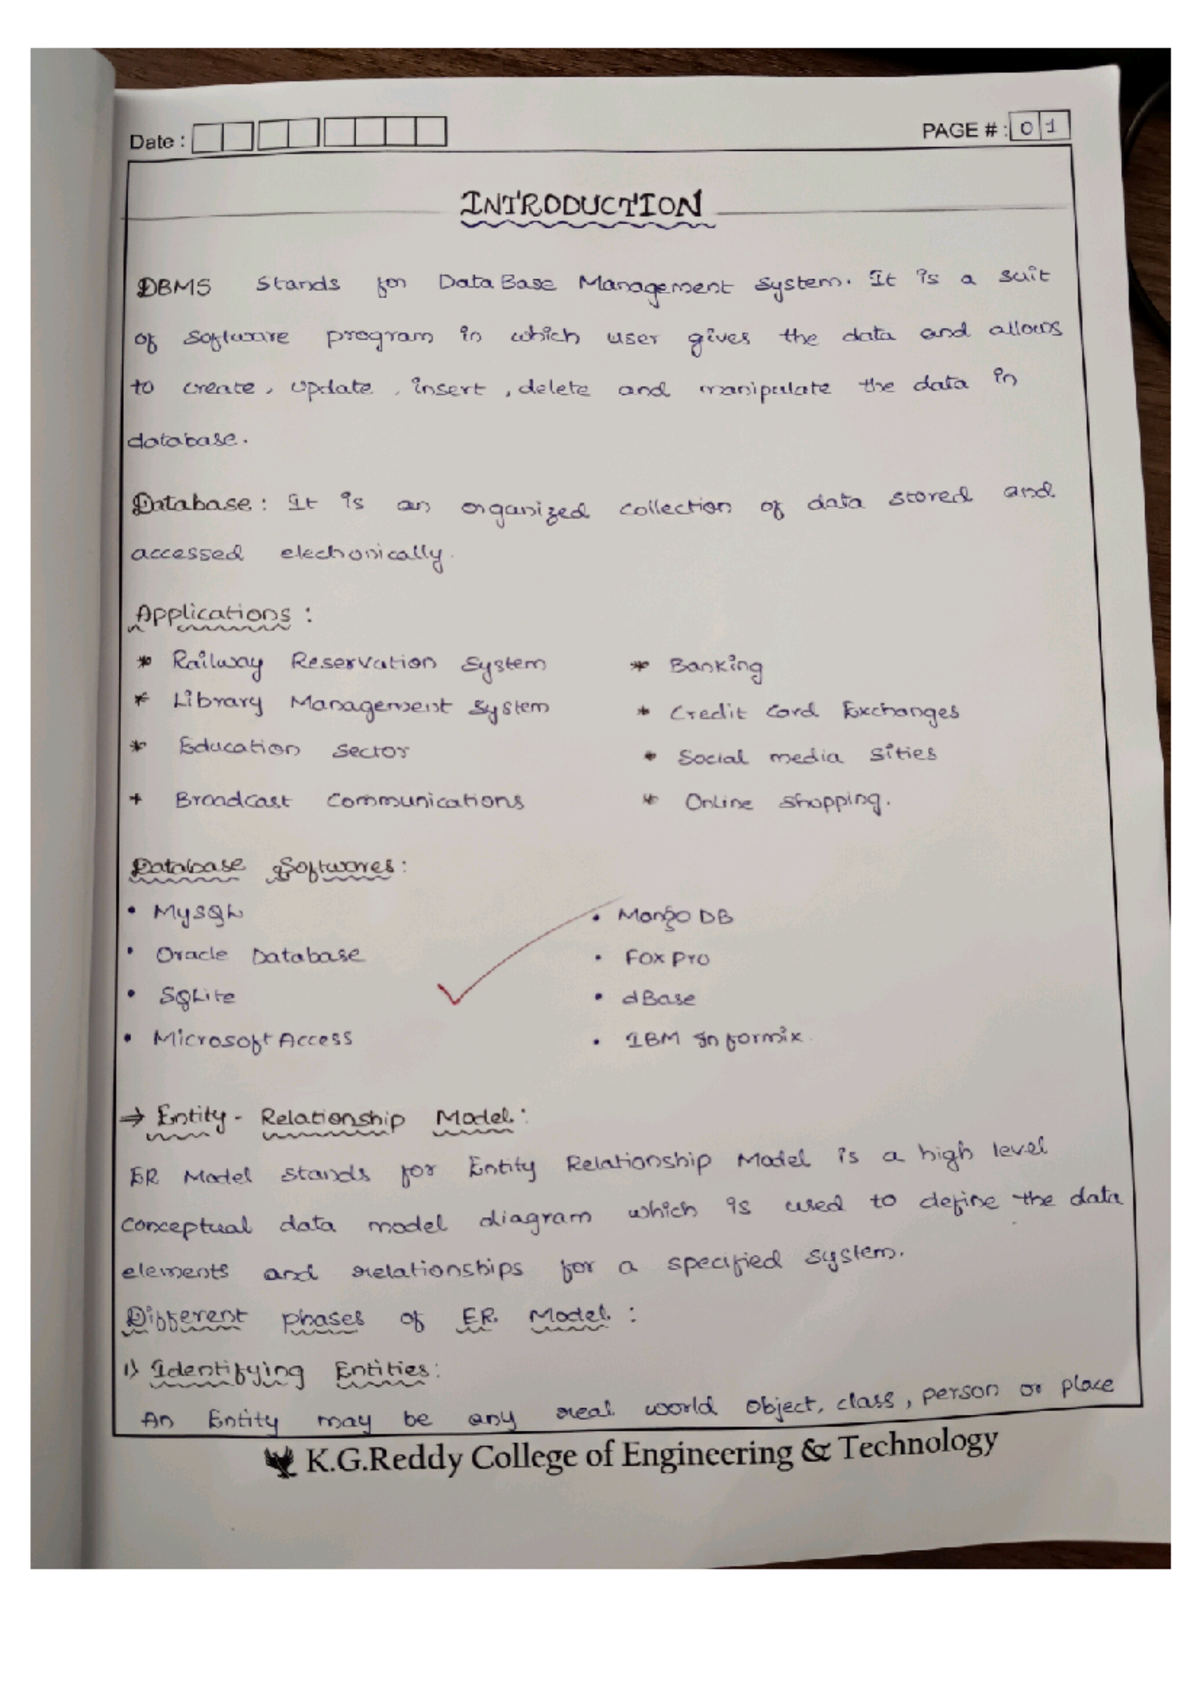 Date :
PAGE # : 01
INTRODUCTION
DBMS Stands for DataBase Management System. It is a suit
of software program in which user gives the data and allows
to create, update, insert, delete and manipulate the data in
database.
Database: It is an organized collection of data stored and
accessed electronically.
Applications:
* Railway Reservation System
* Banking
* Library Management System
* Credit Card Exchanges
* Education Sector
* Social media sities
* Broadcast Communications
* Online Shopping.
Database Softwares:
• MySQL
• MongoDB
• Oracle Database
• FoxPro
• SQLite
• dBase
• Microsoft Access
• IBM Informix.
→ Entity-Relationship Model:
ER Model stands for Entity Relationship Model is a high level
conceptual data model diagram which is used to define the data
elements and relationships for a specified system.
Different phases of ER Model:
1) Identifying Entities:
An Entity may be any real world object, class, person or place
K.G.Reddy College of Engineering & Technology